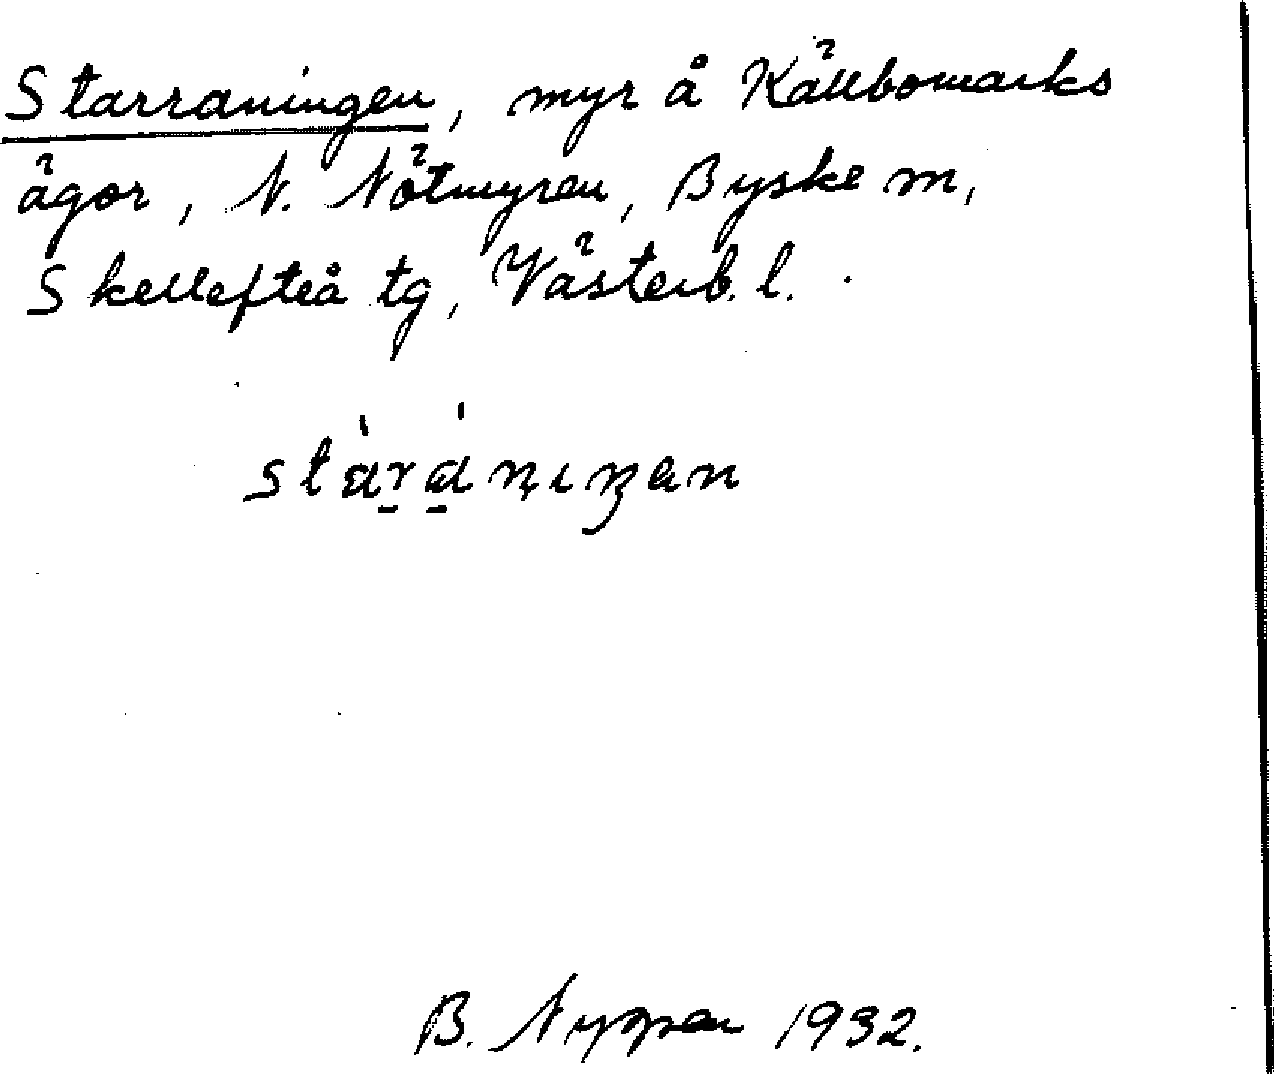 Starraningen, myr å Källbomarks
ägor, N. Nötmyren, Byske m,
Skellefteå tg, Västerb. l.
B. 1932.